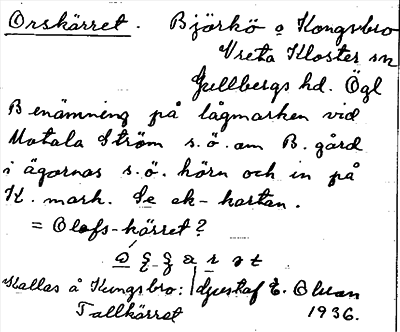 Orskärret. Björkö o Kongsbro
Vreta Kloster sn
Gullbergs hd. Ögl
Benämning på lågmarken vid
Motala Ström s.ö. om B. gård
i ägornas s.ö. hörn och in på
K. mark. Se ek-kartan.
= Olofs-kärret?
Kallas å Kungsbro: Gustaf E. Olsson
Tallkärret 1936.